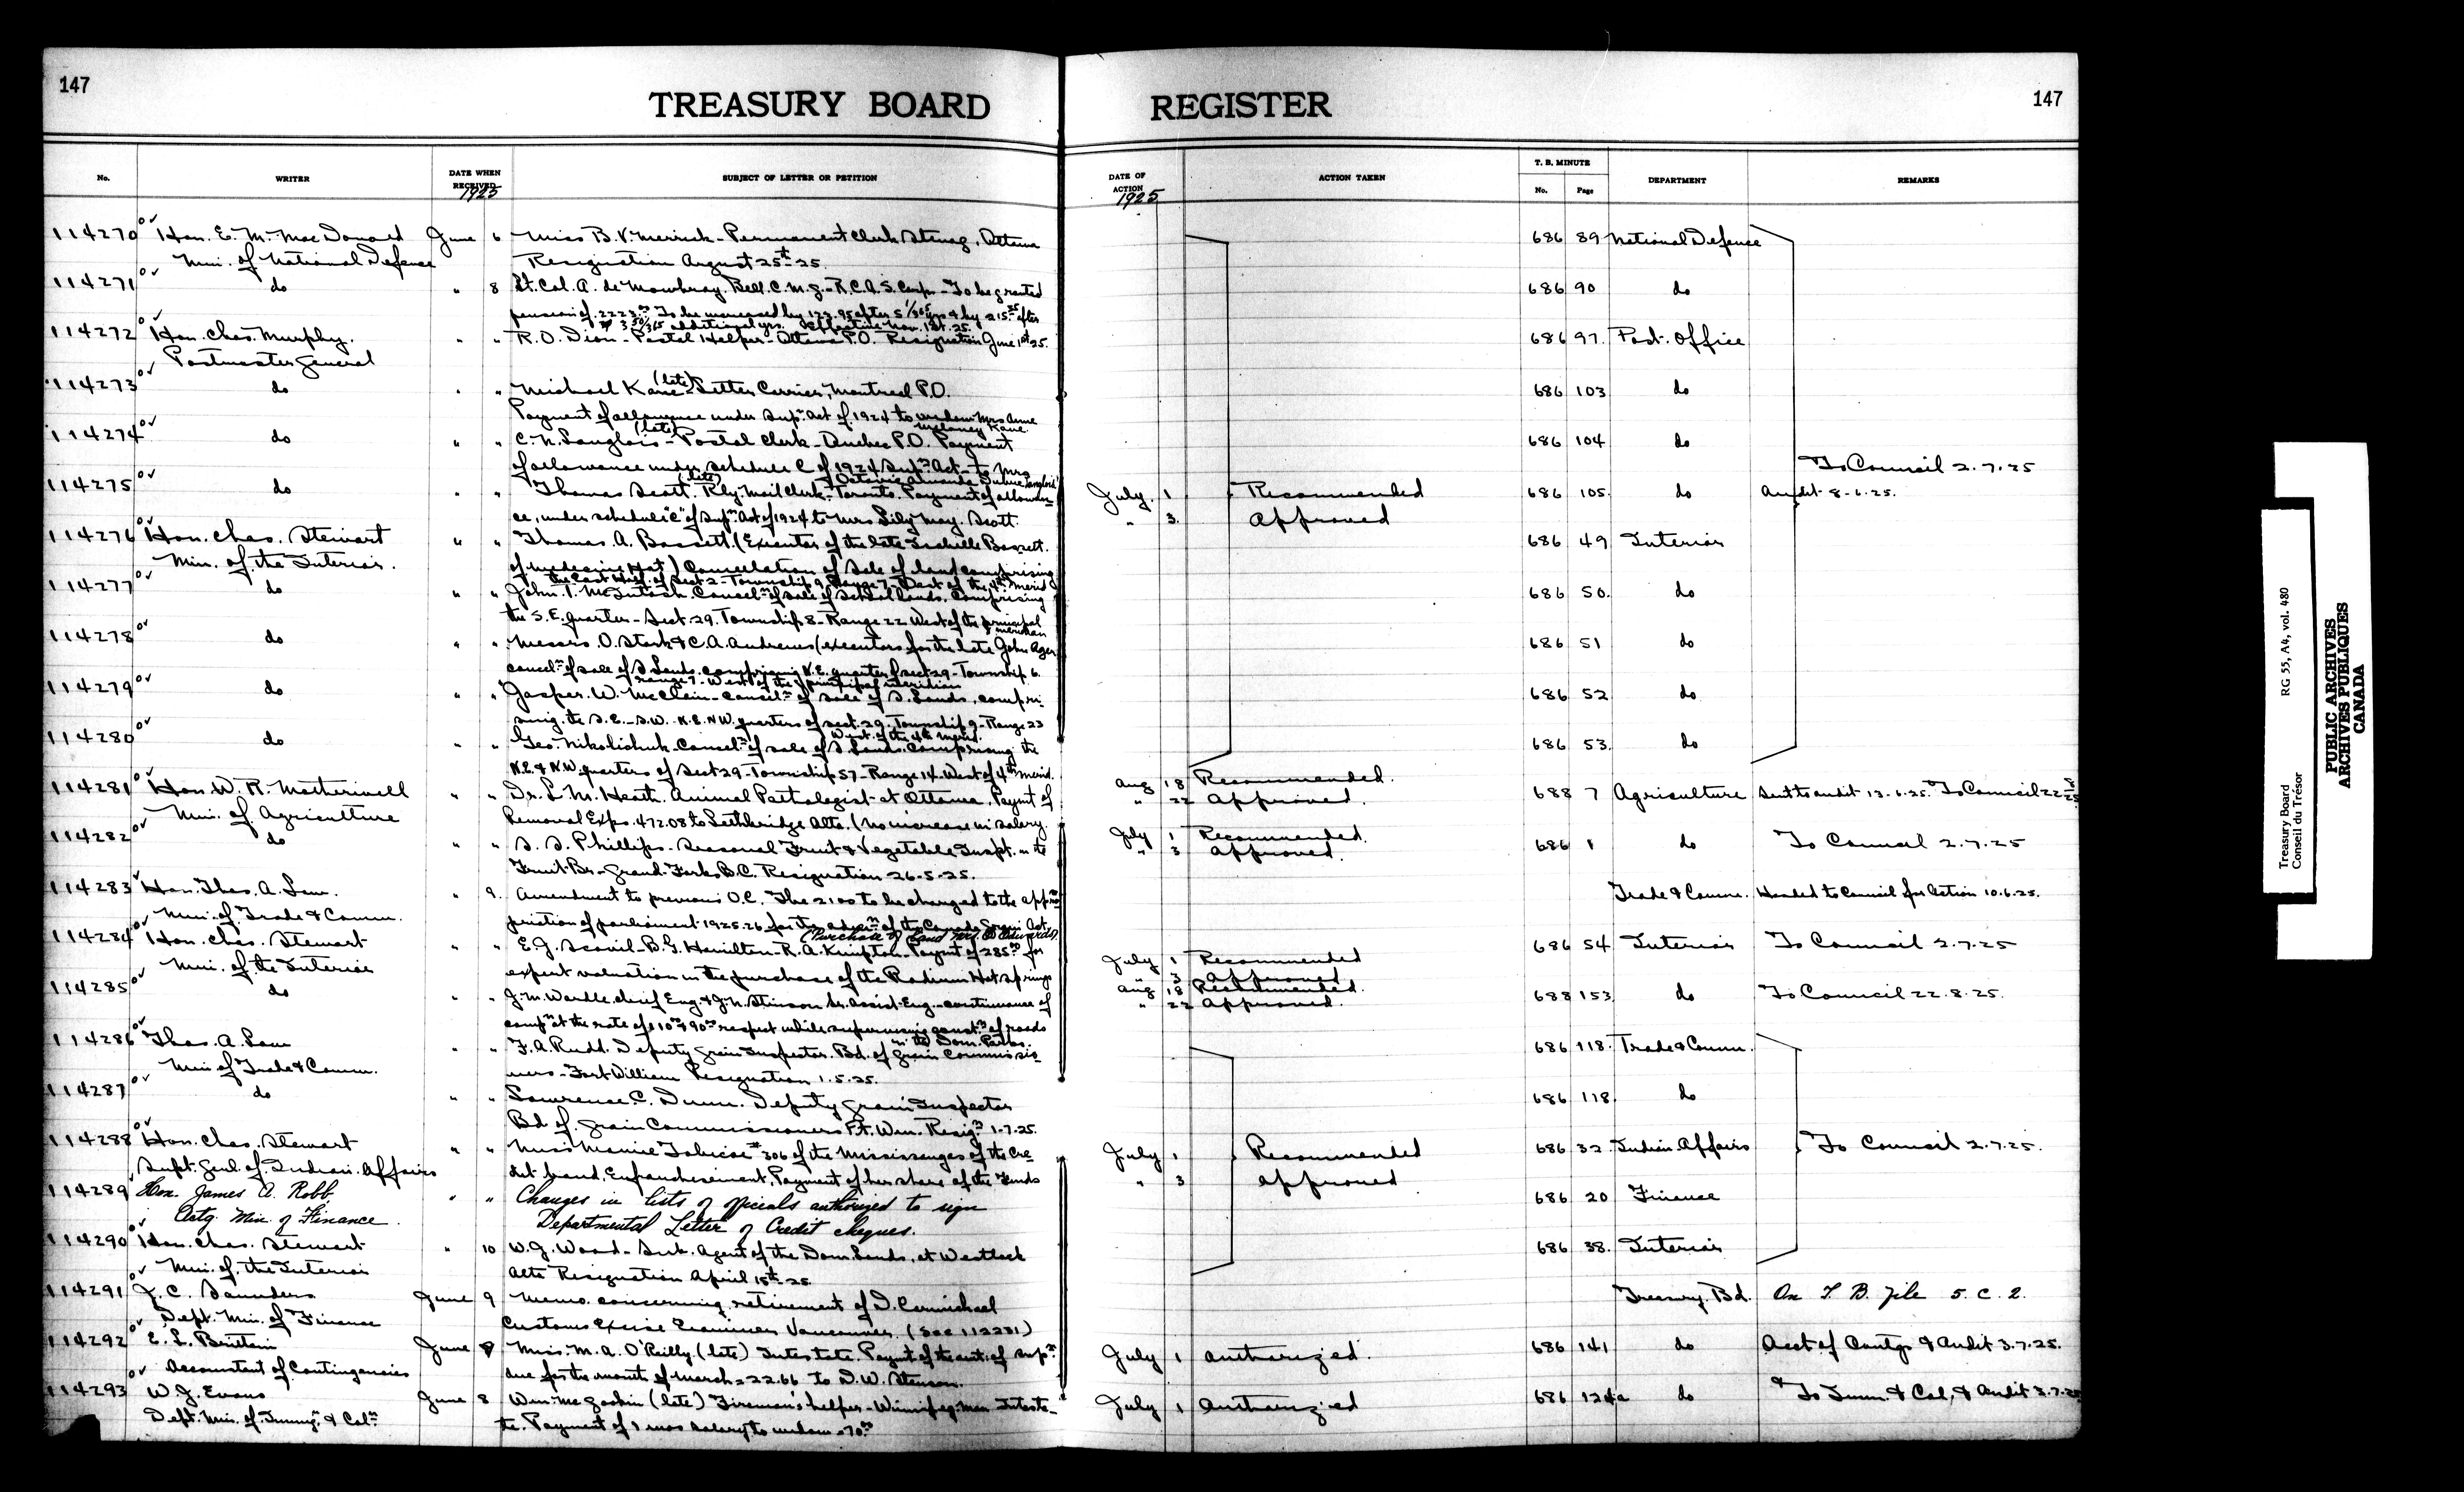 147
TREASURY BOARD REGISTER
147
No. WRITER DATE WHEN RECEIVED SUBJECT OF LETTER OR PETITION DATE OF ACTION ACTION TAKEN T. B. MINUTE No. Page DEPARTMENT REMARKS
1925 1925
114270 Hon. E. M. MacDonald June 6 Miss B. V. Merrick - Permanent Clerk Stenog, Ottawa 686 89 National Defence
Min. of National Defence Resignation August 25th-25.
114271 do " 8 Lt. Col. A. de Mowbray. Bell. C.M.G. - R.C.A.S. Corps - To be granted 686 90 do
pension of 2223. To be increased by 122.95 after 5 1/365 yrs & by 215.35 after
3 50/365 additional yrs. Effective Nov. 1st. 25.
114272 Hon. Chas. Murphy. " " R. O. Dion - Postal Helper - Ottawa P.O. Resignation June 1st 25. 686 97. Post. Office
Postmaster General
114273 do " " Michael Kane (late) - Letter Carrier, Montreal P.O. 686 103 do
Payment of allowance under Sup. Act of 1924 to widow Mrs Anne
Maloney Kane.
114274 do " " C. N. Langlois (late) - Postal Clerk - Quebec P.O. Payment 686 104 do
of allowance under schedule C of 1924 Sup. Act - to Mrs
Langlois
To Council 2.7.25
114275 do " " Thomas Scott (late). Rly. Mail Clerk - Toronto. Payment of allowan- July 1 Recommended 686 105. do Audit 8-6-25.
ce, under schedule "C" of Sup. Act of 1924 to Mrs Lily May. Scott. " 3. Approved
114276 Hon. Chas. Stewart " " Thomas. A. Bassett. (Executor of the late Bassett. 686 49 Interior
Min. of the Interior. of Medicine Hat) Cancellation of sale of land comprising
the East Half of Sect 2 - Township 9 Range 7 - West of the 4th Merid
114277 do " " John. T. McIntosh. Cancel. of sale of School lands. Comprising 686 50. do
the S. E. quarter - Sect. 29. Township 8 - Range 22 West of the principal
meridian
114278 do " " Messrs. O. Stark & C. A. Andrews (executors for the late John Ager 686 51 do
cancel. of sale of S. Lands. comprising N. E. quarter of sect 29 - Township 6.
range 7 - West of the principal meridian
114279 do " " Jasper. W. McClain - Cancel. of sale of S. Lands. compri- 686 52 do
sing. the S. E. - S.W. - N. E. N W. quarters of sect. 29. Township 9 - Range 23
West of the 4th merid.
114280 do " " Geo. Nikolichuk - Cancel. of sale of S. Lands. comprising the 686 53. do
N. E. & N. W. quarters of Sect 29 - Township 57 - Range 14 West of 4th merid.
114281 Hon. W. R. Motherwell " " Dr. L. M. Heath. Animal Pathologist - at Ottawa. Paymt of Aug 18 Recommended. 688 7 Agriculture Sent to audit 13-6-25. To Council 22-8-25
Min. of Agriculture Removal Exps. 472.08 to Lethbridge Alta. (No increase in salary. " 22 Approved.
114282 do " " S. S. Phillips. Seasonal Fruit & Vegetable Inspt. in the July 1 Recommended. 686 1 do To Council 2.7.25
Fruit Br - Grand Forks B.C. Resignation 26-5-25. " 3 Approved.
114283 Hon. Thos. A. Low. " 9. Amendment to previous O.C. The 2100 to be charged to the appro- Trade & Comm. Handed to Council for Action 10.6.25.
Min. of Trade & Comm. priation of parliament 1925.26 for the admin. of the Canada Grain Act.
(Purchase of Land Edwards).
114284 Hon. Chas. Stewart " " E. G. Scovil - B. G. Hamilton - R. A. Kimpton - Paymt of 285.00 for July 1 Recommended 686 54 Interior To Council 2.7.25
Min. of the Interior expert valuation in the purchase of the Radium Hot springs " 3 Approved
114285 do " " J. M. Wardle. chief Eng. & J. N. Stinson Sr. Assist. Eng. - continuance of Aug 18 Recommended. 688 153 do To Council 22.8.25.
comp. at the rate of 110 & 90 respect while supervising const. of roads " 22 Approved.
in the Dom. Parks.
114286 Thos. A. Low " " F. A. Rudd. Deputy Grain Inspector. Bd. of Grain Commissio- 686 118. Trade & Comm.
Min of Trade & Comm. ners - Fort William Resignation 1.5.25.
114287 do " " Lawrence. C. Dunn. Deputy Grain Inspector 686 118 do
Bd of. Grain Commissioners Ft. Wm. Resig. 1-7-25.
114288 Hon. Chas. Stewart " " Miss Mamie Tobicoe #306 of the Mississaugas of the Cre- July 1 Recommended 686 32. Indian. Affairs To Council 2.7.25.
Supt. Genl. of. Indian. Affairs dit band. Enfranchisement. Payment of her share of the Funds " 3 Approved
114289 Hon. James A. Robb. " " Changes in lists of officials authorized to sign 686 20 Finance
Actg. Min. of Finance. Departmental Letter of Credit cheques.
114290 Hon. Chas. Stewart " 10 W. G. Wood - Sub. Agent of the Dom. Lands, at Westlock 686 38. Interior
Min. of. the Interior Alta Resignation April 15th-25
114291 J. C. Saunders June 9 Memo. concerning retirement of D. Carmichael Treasury. Bd. On T. B. file 5. C. 2.
Dept. Min. of Finance Customs Excise Examiner Vancouver. (See 112231)
114292 E. L. Brittain June 8 Miss. M. A. O'Reilly. (late) Intestate. Paymt of the amt. of sup. July 1 authorized. 686 141 do Acct of Contgs & Audit 3.7.25.
Accountant of Contingencies due for the month of March = 22.66 to D. W. Stenson.
114293 W. J. Egan June 8 Wm. McGoskin (late) Fireman's helper - Winnipeg. Man. Intesta- July 1 Authorized 686 124a do To Imm. & Col, & Audit 3.7.25
Dept. Min. of. Immg. & Col. te. Payment of 1 mos salary to widow = 70.00
Treasury Board
Conseil du Trésor
RG 55, A4, vol. 480
PUBLIC ARCHIVES
ARCHIVES PUBLIQUES
CANADA